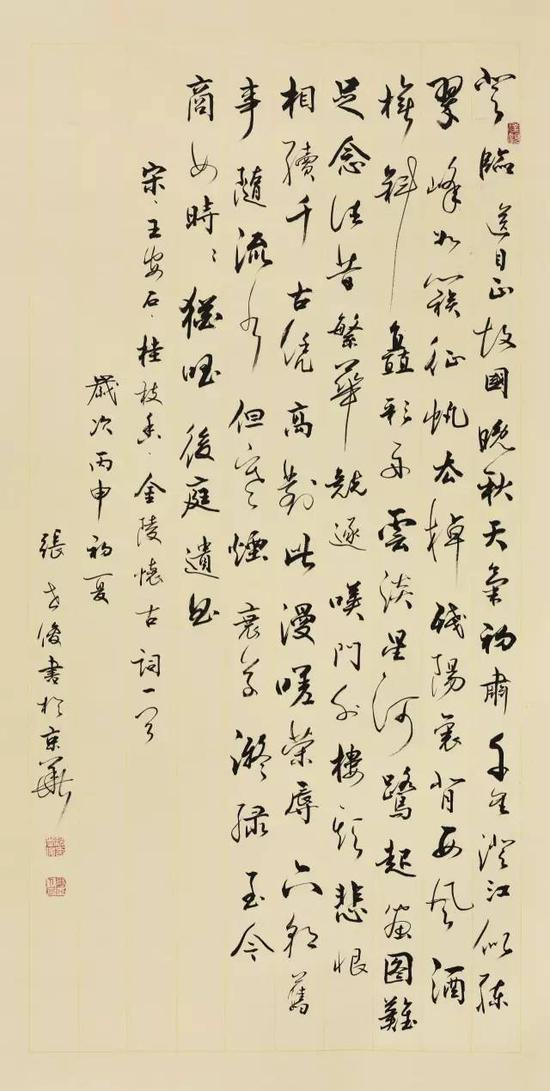 登臨送目正故國晚秋天氣初肅千里澄江似練
翠峰如簇征帆去棹殘陽裏背西風酒
旗斜矗彩舟雲淡星河鷺起畫圖難
足念往昔繁華競逐嘆門外樓頭悲恨
相續千古凭高對此漫嗟榮辱六朝舊
事隨流水但寒煙衰草凝綠至今
商女時々猶唱後庭遺曲
宋·王安石·桂枝香·金陵懷古詞一首
歲次丙申初夏
張俊書於京華